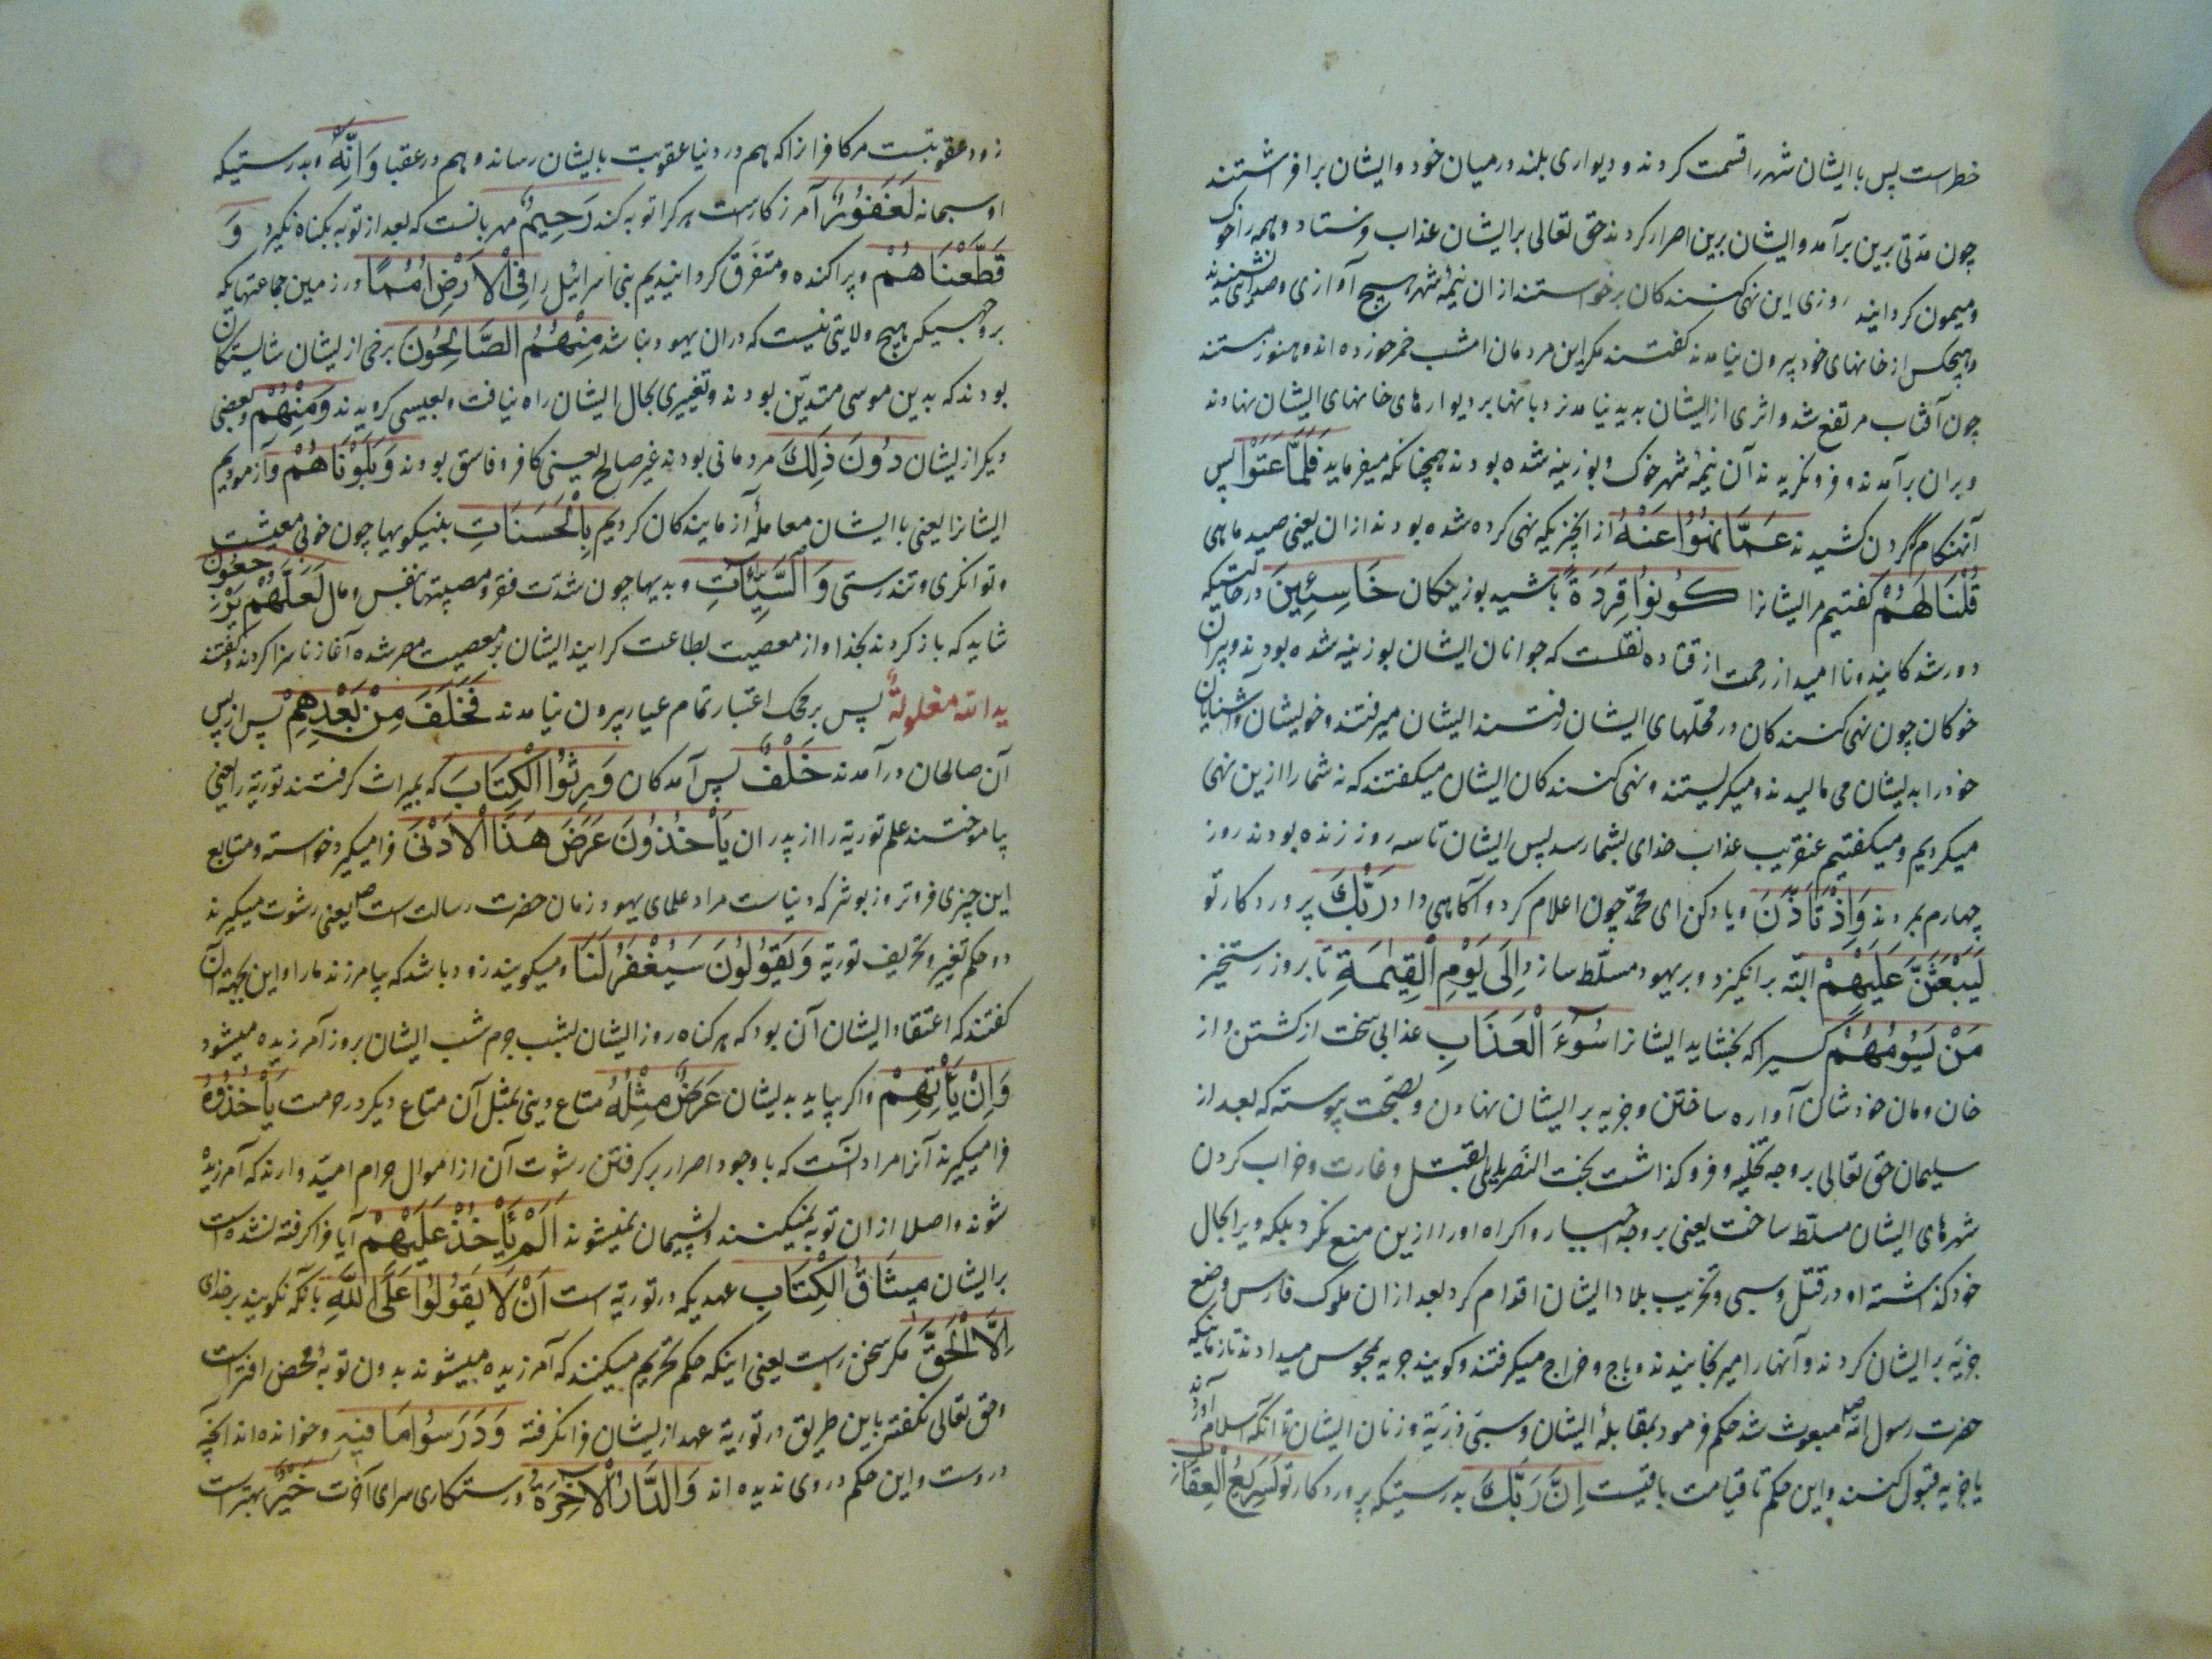 خطر است پس با ایشان شهر را قسمت کردند و دیواری بلند درمیان خود و ایشان برافراشتند
چون مدّتی برین برآمد و ایشان برین اصرار کردند حق تعالی بر ایشان عذاب فرستاد و همه را خوک
و میمون کردانید روزی این نهی کنندکان برخواستند از ان نیمهٔ شهر هیچ آوازی و صدائی نشنیدند
و هیچکس از خانهای خود بیرون نیامدند کفتند مکر این مردمان امشب خمر خورده اند و هنوز مستند
چون آفتاب مرتفع شد و اثری از ایشان پدید نیامد نردبانها بر دیوارهای خانهای ایشان نهادند
و بران برآمدند و فرونکریدند آن نیمهٔ شهر خوک و بوزینه شده بودند همچنانکه میفرماید فَلَمَّا عَتَوْا پس
آنهنکام گردن کشیدند عَمَّا نُهُوا عَنْهُ از انچیزیکه نهی کرده شده بودند از ان یعنی صید ماهی
قُلْنَا لَهُمْ کفتیم مر ایشانرا کُونُوا قِرَدَةً باشید بوزینکان خَاسِئِینَ درحالتیکه
دور شدکانید و ناامید از رحمت از قتاده نقلست که جوانان ایشان بوزینه شده بودند و پیران
خوکان چون نهی کنندکان در محلّهای ایشان رفتند ایشان میرفتند و خویشان و آشنایان
خود را بدیشان می مالیدند و میکریستند و نهی کنندکان ایشان میکفتند که نه شما را ازین نهی
میکردیم و میکفتیم عنقریب عذاب خدای بشما رسد پس ایشان تا سه روز زنده بودند روز
چهارم بمردند وَاِذْ تَاَذَّنَ و یاد کن ای محمّد چون اعلام کرد و آکاهی داد رَبُّكَ پروردکار تو
لَیَبْعَثَنَّ عَلَیْهِمْ البتّه برانکیزد و بر یهود مسلّط سازد اِلَی یَوْمِ الْقِیٰمَةِ تا بروز رستخیز
مَنْ یَسُومُهُمْ کسیرا که بخشاید ایشانرا سُوۤءَ الْعَذَابِ عذابی سخت از کشتن و از
خان و مان خودشان آواره ساختن و جزیه بر ایشان نهادن و بصحّت پیوسته که بعد از
سلیمان حق تعالی بر وجه تخلیه و فروکذاشت بخت النّصر را بقتل و غارت و خراب کردن
شهرهای ایشان مسلّط ساخت یعنی بر وجه اجبار و اکراه او را ازین منع نکرد بلکه ویرا بحال
خود کذاشته او در قتل و سبی و تخریب بلاد ایشان اقدام کرد بعد ازان ملوک فارس وضع
جزیه بر ایشان کردند و آنها را میرنجانیدند و باج و خراج میکرفتند و کویند جزیه بمجوس میدادند تا زمانیکه
حضرت رسول اللّه صلعم مبعوث شد حکم فرمود بمقابلهٔ ایشان و سبی ذرّیّة و زنان ایشان تا آنکه اسلام آورند
یا جزیه قبول کنند و این حکم تا قیامت باقیست اِنَّ رَبَّكَ بدرستیکه پروردکار تو لَسَرِیعُ الْعِقَابِ
زود عقوبتست مر کافرانرا که هم در دنیا عقوبت بایشان رساند و هم در عقبا وَاِنَّهُ و بدرستیکه
او سبحانه لَغَفُورٌ آمرزکار است هر کرا توبه کند رَحِیمٌ مهربانست که بعد از توبه بکناه نکیرد وَ
قَطَّعْنَاهُمْ و پراکنده و متفرّق کردانیدیم بنی اسرائیل را فِی الْاَرْضِ اُمُمًا در زمین جماعتهاکه
بروجهیکه هیچ ولایتی نیست که دران یهود نباشد مِنْهُمُ الصَّالِحُونَ برخی از یشان شایستکان
بودند که بدین موسی متدیّن بودند و تغییری بحال ایشان راه نیافت و بعیسی کرویدند وَمِنْهُمْ و بعضی
دیکر از یشان دُونَ ذٰلِكَ مردمانی بودند غیر صالح یعنی کافر و فاسق بودند وَبَلَوْنَاهُمْ و آزمودیم
ایشانرا یعنی با ایشان معاملهٔ آزمایندکان کردیم بِالْحَسَنَاتِ بنیکوییها چون خوبی معیشت
و توانکری و تندرستی وَالسَّیِّئَاتِ و بدیها چون شدّت فقر و مصیبتها بنفس و مال لَعَلَّهُمْ یَرْجِعُونَ
شاید که بازکردند بخدا و از معصیت بطاعت کرایند ایشان بر معصیت مصر شده آغاز ناسزا کردند و کفتند
ید اللّه مغلولةٌ پس بر محک اعتبار تمام عیار بیرون نیامدند فَخَلَفَ مِنْ بَعْدِهِمْ پس از پس
آن صالحان درآمدند خَلْفٌ پس آمدکان وَرِثُوا الْکِتَابَ که بمیراث کرفتند توریة را یعنی
بیاموختند علم توریة را از پدران یَاْخُذُونَ عَرَضَ هٰذَا الْاَدْنَی فرامیکیرد خواسته و متابع
این چیزی فروتر و زبونتر که دنیاست مراد علمای یهود زمان حضرت رسالت است صلعم یعنی رشوت میکیرند
در حکم تغییر و تحریف توریة وَیَقُولُونَ سَیُغْفَرُ لَنَا و میکویند زود باشد که بیامرزند ما را و این بجهة آن
کفتند که اعتقاد ایشان آن بود که هر کناه روز ایشان بشب و جرم شب ایشان بروز آمرزیده میشود
وَاِنْ یَاْتِهِمْ و اکر بیاید بدیشان عَرَضٌ مِثْلُهُ متاع دینی بمثل آن متاع دیکر در حرمت یَاْخُذُوهُ
فرامیکیرند آنرا مراد آنست که با وجود اصرار بر کرفتن رشوت آن از اموال حرام امید دارند که آمرزیده
شوند و اصلا از ان توبه نمیکنند و پشیمان نمیشوند اَلَمْ یُؤْخَذْ عَلَیْهِمْ آیا فراکرفته نشده است
بر ایشان مِیثَاقُ الْکِتَابِ عهدیکه در توریة است اَنْ لَا یَقُولُوا عَلَی اللّٰهِ بآنکه نکویند بر خدای
اِلَّا الْحَقَّ مکر سخن راست یعنی اینکه حکم تحریم میکنند که آمرزیده میشوند بدون توبه محض افتراست
و حق تعالی نکفته باین طریق در توریة عهد از یشان فرانکرفته وَدَرَسُوا مَا فِیهِ و خوانده اند انچه
دروست و این حکم در وی ندیده اند وَالدَّارُ الْاٰخِرَةُ و رستکاری سرای آخرت خَیْرٌ بهتر است